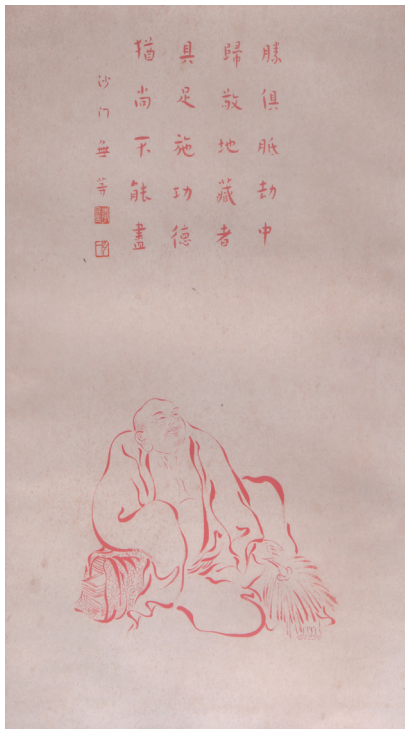 勝俱胝劫中
歸敬地藏者
具足施功德
猶尚不能盡
沙门無等